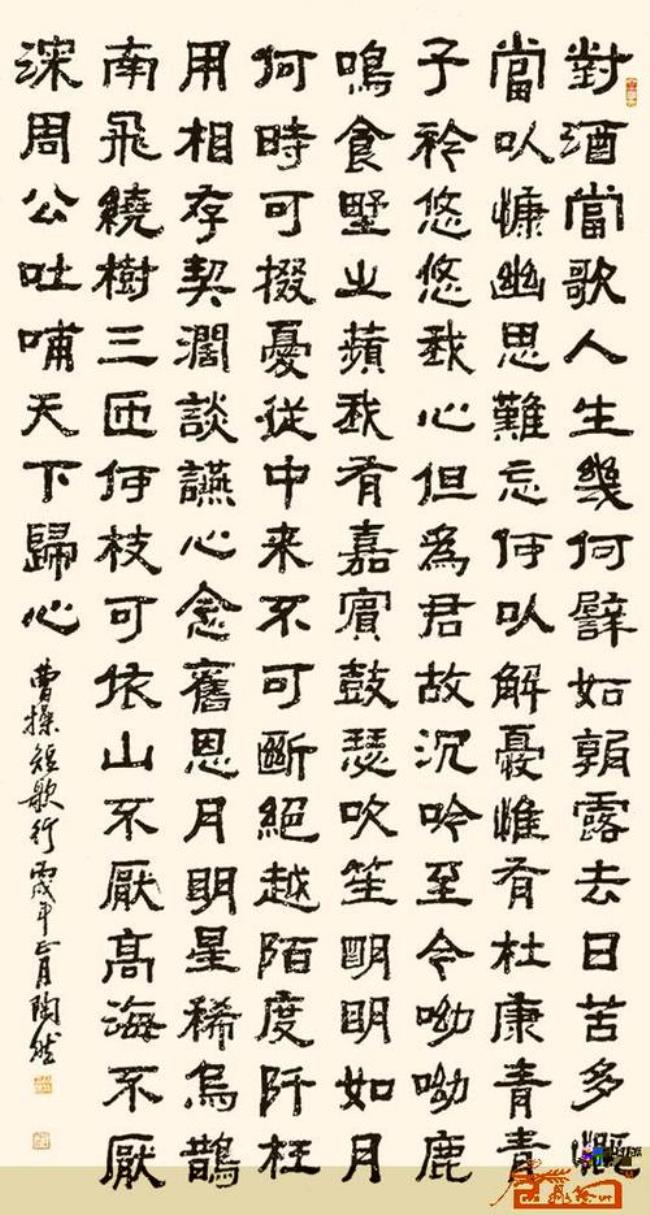 對酒當歌人生幾何譬如朝露去日苦多慨
當以慷幽思難忘何以解憂惟有杜康青青
子衿悠悠我心但為君故沉吟至今呦呦鹿
鳴食墅之蘋我有嘉賓鼓瑟吹笙明明如月
何時可掇憂從中来不可斷絕越陌度阡枉
用相存契濶談讌心念舊恩月明星稀烏鵲
南飛繞樹三匝何枝可依山不厭高海不厭
深周公吐哺天下歸心
曹操短歌行丙戌年正月陶然